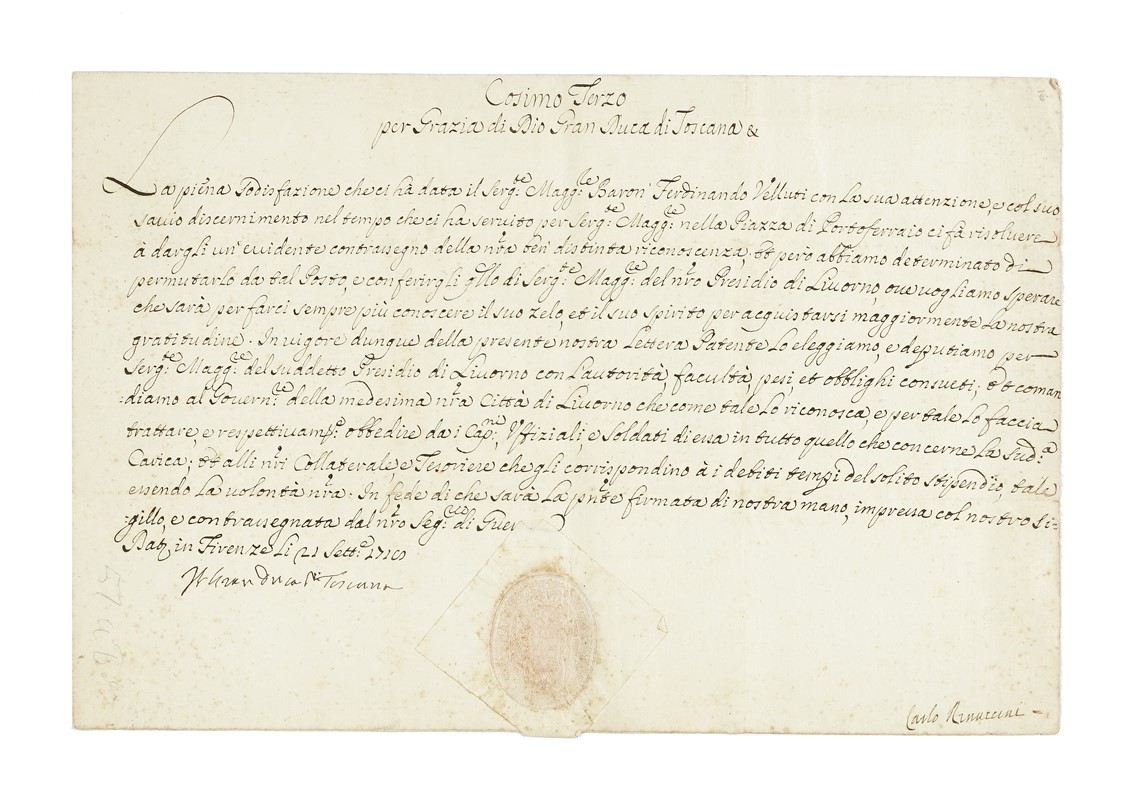 Cosimo Terzo
per Grazia di Dio Gran Duca di Toscana &
La piena Sodisfazione che ci hà data il Serg:te Magg:re Baron Ferdinando Velluti con La sua attenzione, e col suo
savio discernimento nel tempo che ci ha servito per Serg:te Magg:re nella Piazza di Portoferraio ci fà risolvere
à dargli un' evidente contrassegno della nr̃a ben distinta riconoscenza. Et però abbiamo determinato di
permutarlo da tal Posto, e conferirgli qllo di Serg:te Magg:re del nr̃o Presidio di Livorno, ove vogliamo sperare
che sarà per farci sempre più conoscere il suo zelo, et il suo spirito per acquistarsi maggiormente La nostra
gratitudine. In vigore dunque della presente nostra Lettera Patente Lo eleggiamo, e deputiamo per
Serg:te Magg:re del suddetto Presidio di Livorno con L'autorità, facultà, pesi, et obblighi consueti; Et coman
=diamo al Govern:re della medesima nr̃a Città di Livorno che come tale Lo riconosca, e per tale Lo faccia
trattare, e respettivam:e obbedire da i Cap:ni, Uffiziali, e Soldati di essa in tutto quello che concerne La Sud:a
Carica; Et alli nr̃i Collaterale, e Tesoriere che gli corrispondino à i debiti tempi del solito stipendio, tale
essendo La volontà nr̃a. In fede di che sarà La pñte firmata di nostra mano, impressa col nostro Si=
=gillo, e contrassegnata dal nr̃o Seg:rio di Guer
Dat in Firenze Li 21 Sett:e
Il Gran Duca di Toscana
Carlo Rinuccini